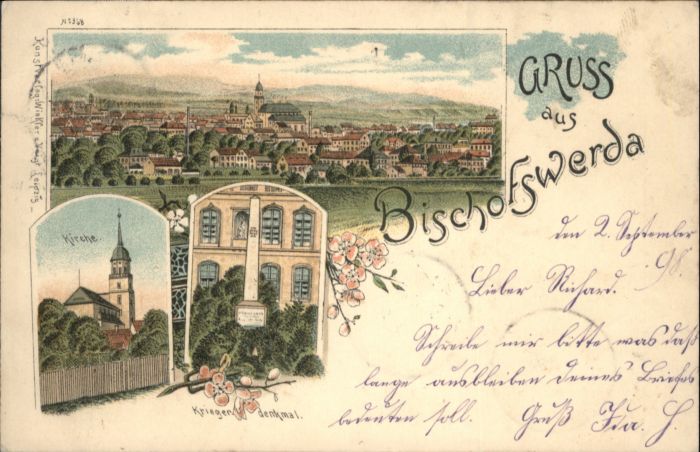 N 5368
Kunstverlag Winkler & Voigt Leipzig
GRUSS
aus
Bischofswerda
Kirche.
Krieger denkmal.
den 2. September
98.
Lieber Richard.
Schreibe mir bitte was daß
lange ausbleiben deines Briefes
bedeuten soll. Gruß Ida. H.